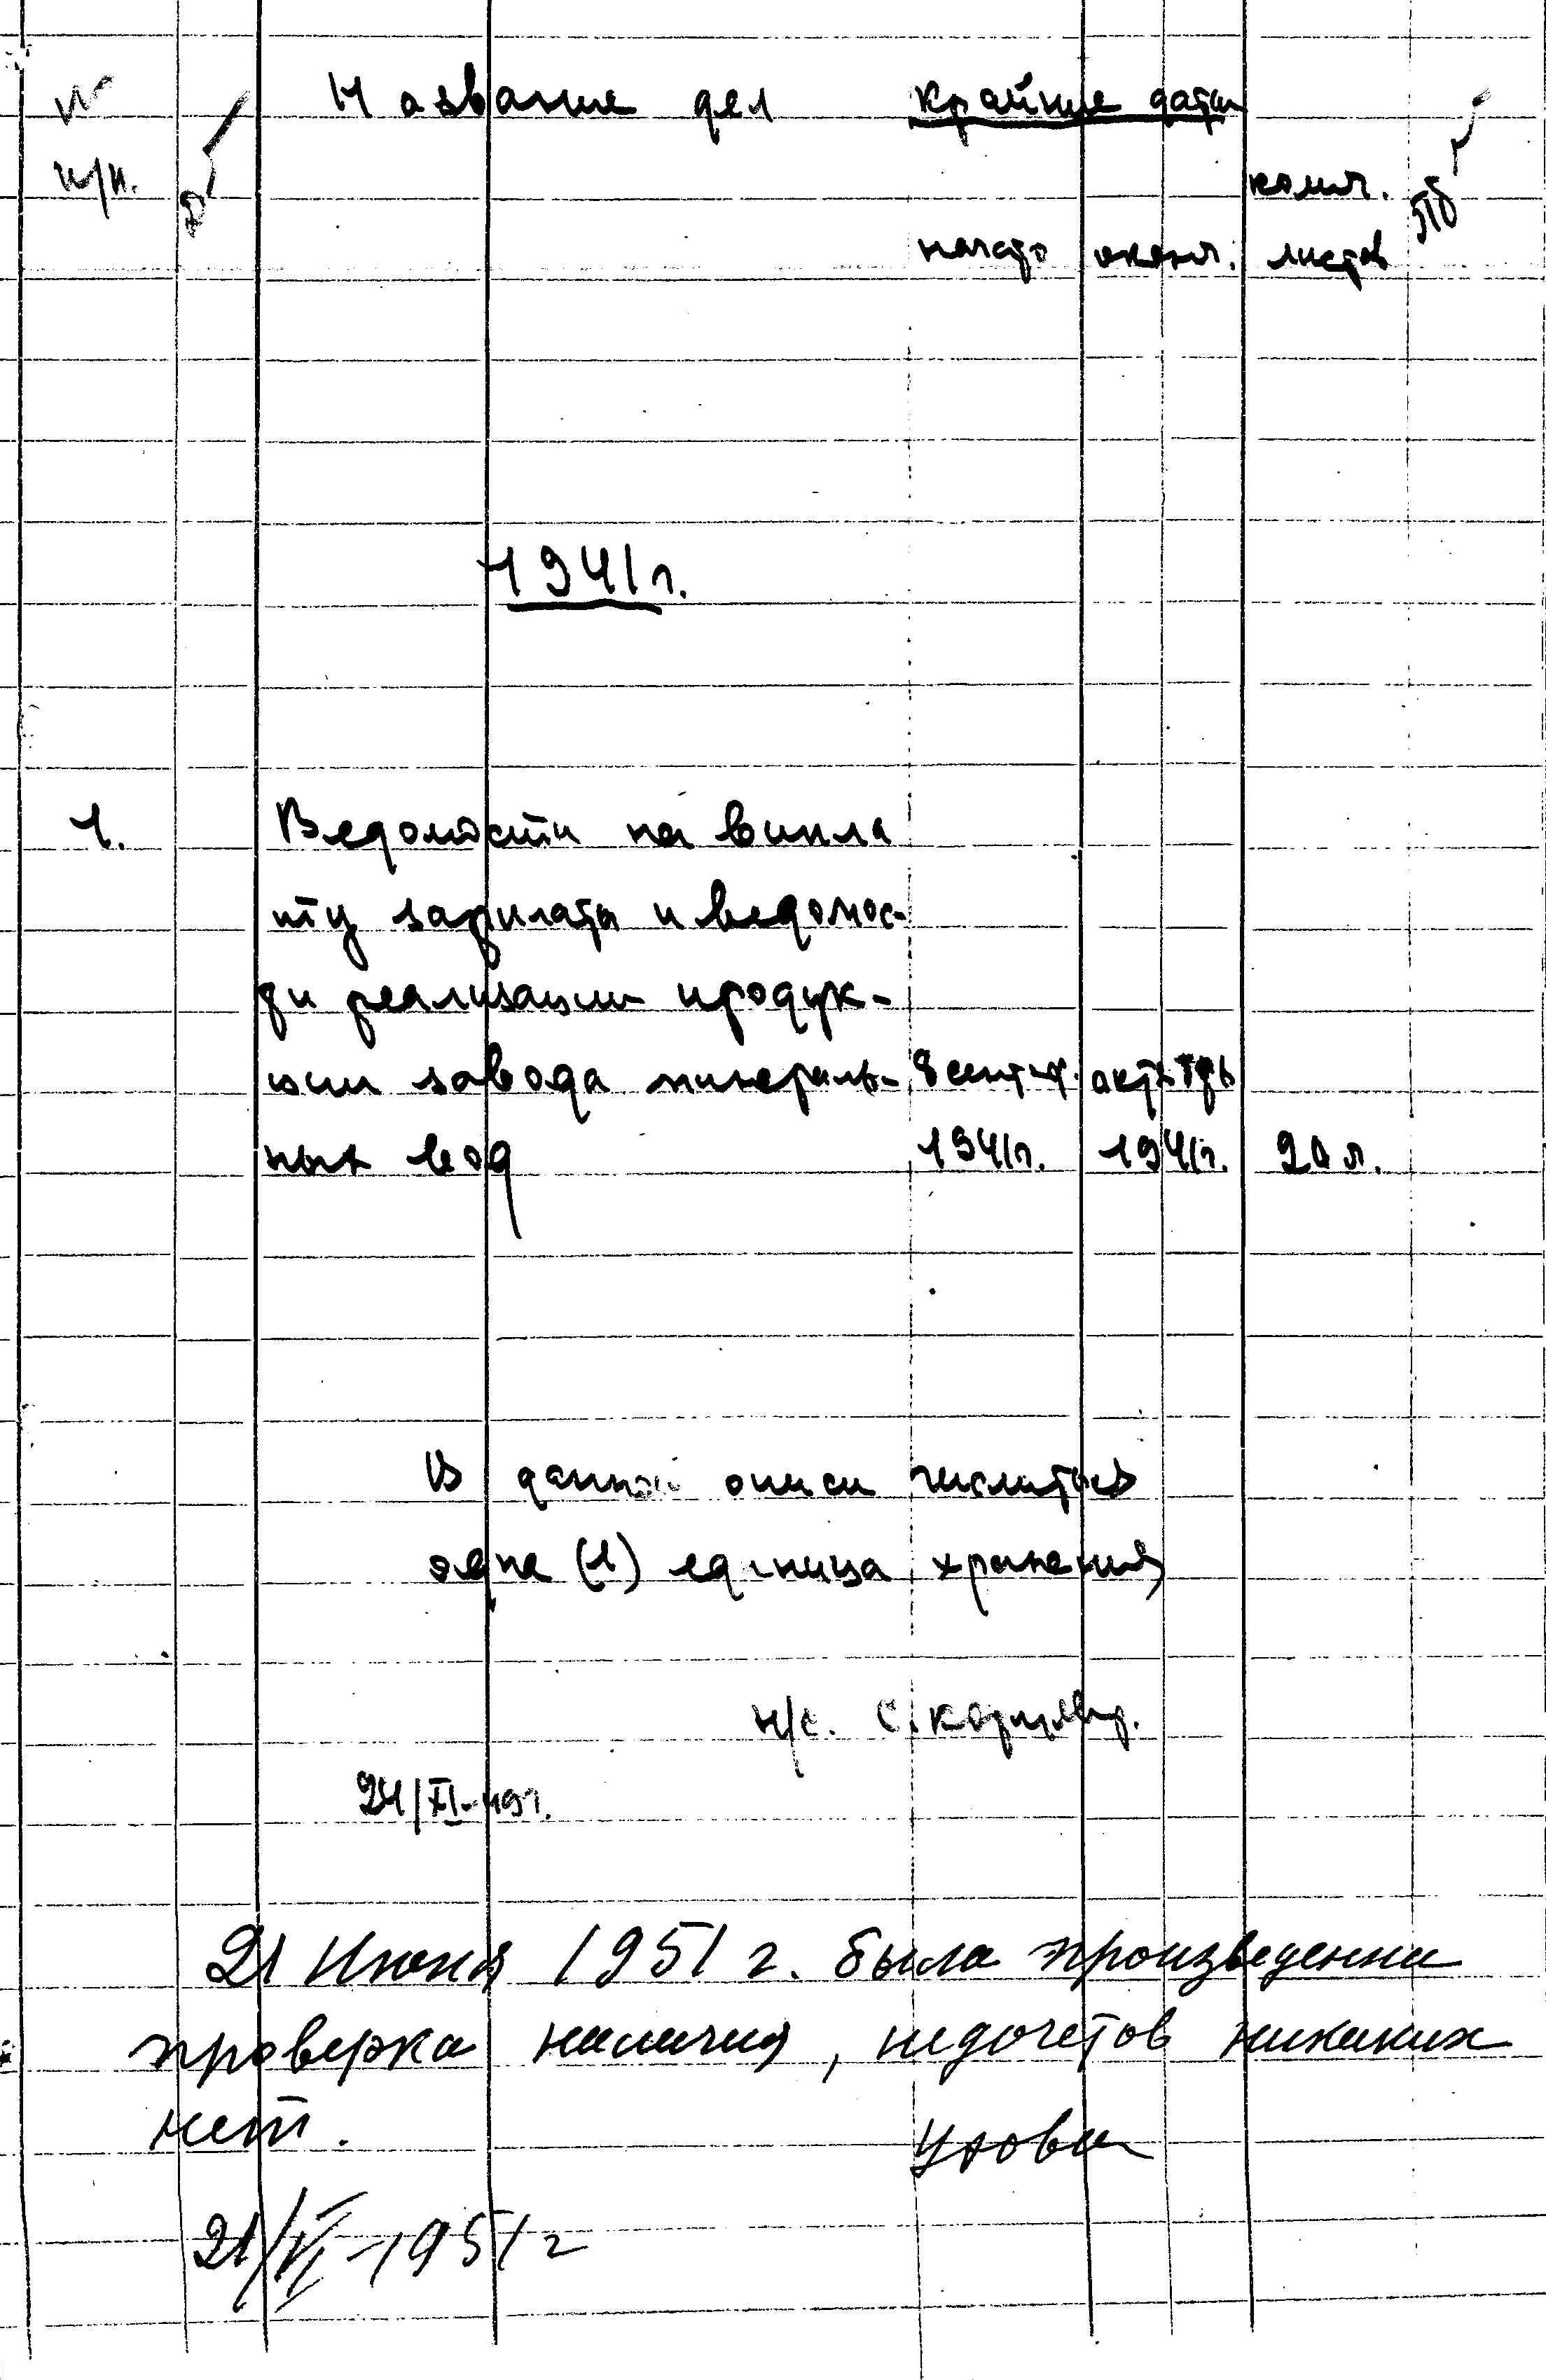 № Название дел крайние даты
п/п. колич.
начало оконч. листов
1941 г.
1. Ведомости на випла
ту зарплаты и ведомос-
ти реализации продук-
ции завода минераль- 8 сентяб. октябрь
ных вод 1941 г. 1941 г. 20 л.
В данной описи числится
одна (1) единица хранения
н/с.
24/XI-49 г.
21 Июня 1951 г. была произведенна
проверка наличия, недочетов никаких
нет.
21/VI-1951 г